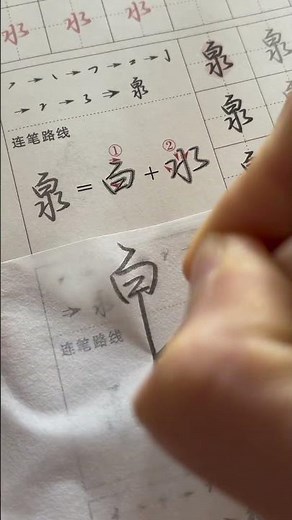 水 水 水
泉 泉
→ 泉
连笔路线
泉
① ②
泉 = 白 + 水
泉
白
→ 水
连笔路线